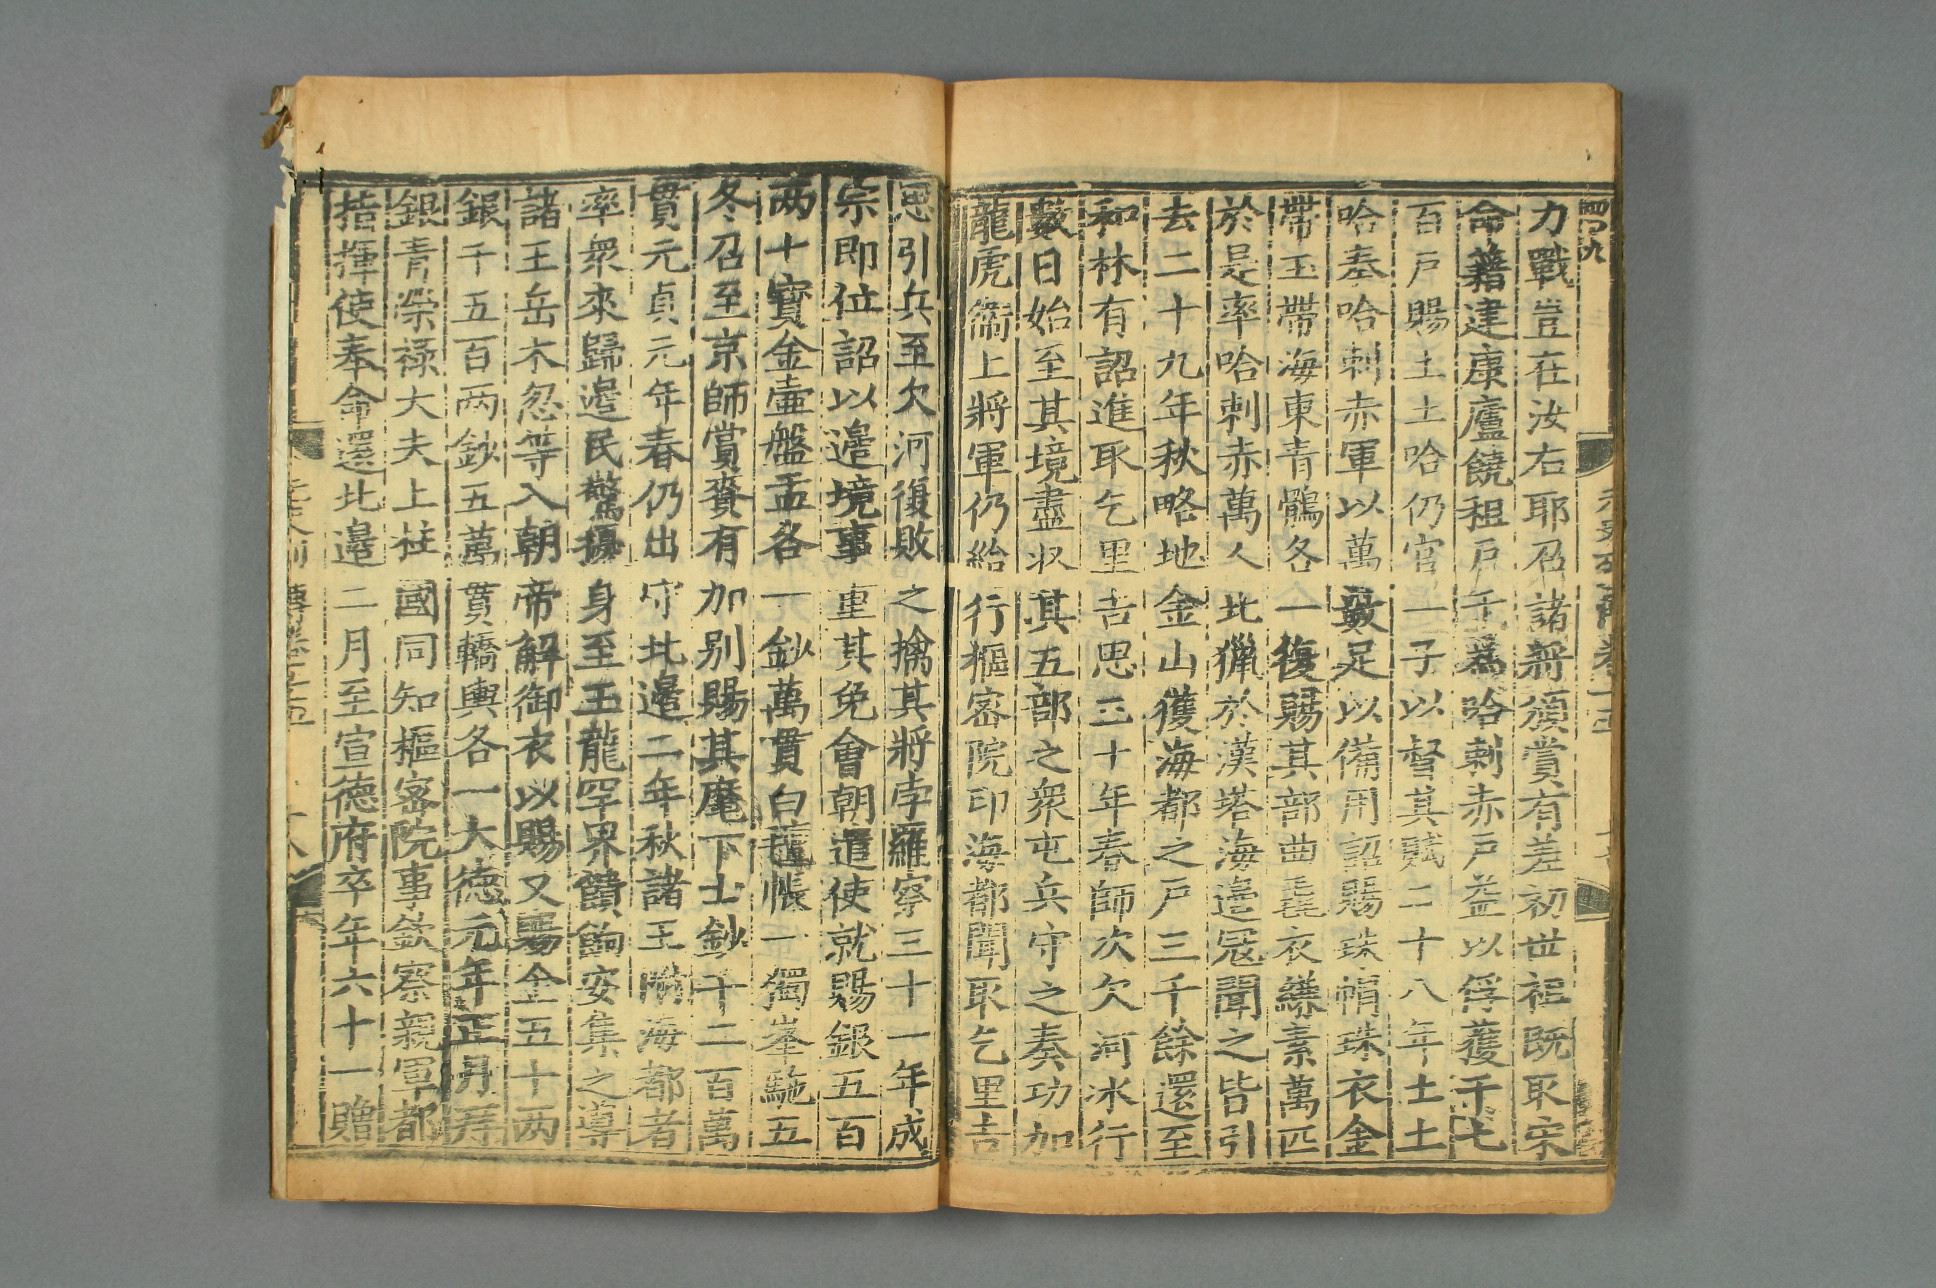 力戰豈在汝右耶召諸將頒賞有差初世祖既取宋
命籍建康廬饒租戶千為哈剌赤戶益以俘獲千七
百戶賜土土哈仍官一子以督其賦二十八年土土
哈奏哈剌赤軍以萬數足以備用詔賜珠帽珠衣金
帶玉帶海東青鶻各一復賜其部曲毳衣縑素萬匹
於是率哈剌赤萬人北獵於漢塔海邊寇聞之皆引
去二十九年秋略地金山獲海都之戶三千餘還至
和林有詔進取乞里吉思三十年春師次欠河冰行
數日始至其境盡收其五部之衆屯兵守之奏功加
龍虎衞上將軍仍給行樞密院印海都聞取乞里吉
思引兵至欠河復敗之擒其將孛羅察三十一年成
宗即位詔以邊境事重其免會朝遣使就賜銀五百
兩七寶金壺盤盂各一鈔萬貫白氊帳一獨峯駞五
冬召至京師賞賚有加别賜其麾下士鈔千二百萬
貫元貞元年春仍出守北邊二年秋諸王附海都者
率衆來歸邊民驚擾身至玉龍罕界饋餉安集之導
諸王岳木忽等入朝帝解御衣以賜又賜金五十兩
銀千五百兩鈔五萬貫轎輿各一大德元年正月拜
銀青榮祿大夫上柱國同知樞密院事欽察親軍都
指揮使奉命還北邊二月至宣德府卒年六十一贈